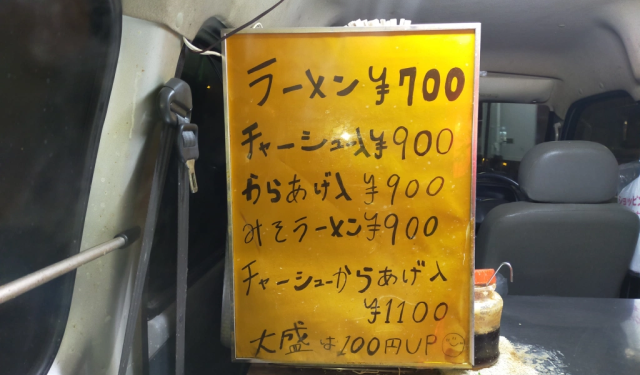 ラーメン ¥700
チャーシュー入 ¥900
からあげ入 ¥900
みそラーメン ¥900
チャーシューからあげ入
¥1100
大盛は100円UP